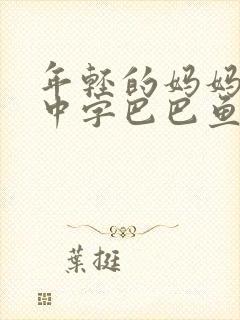 年轻的妈妈
中字巴巴鱼
葉挺